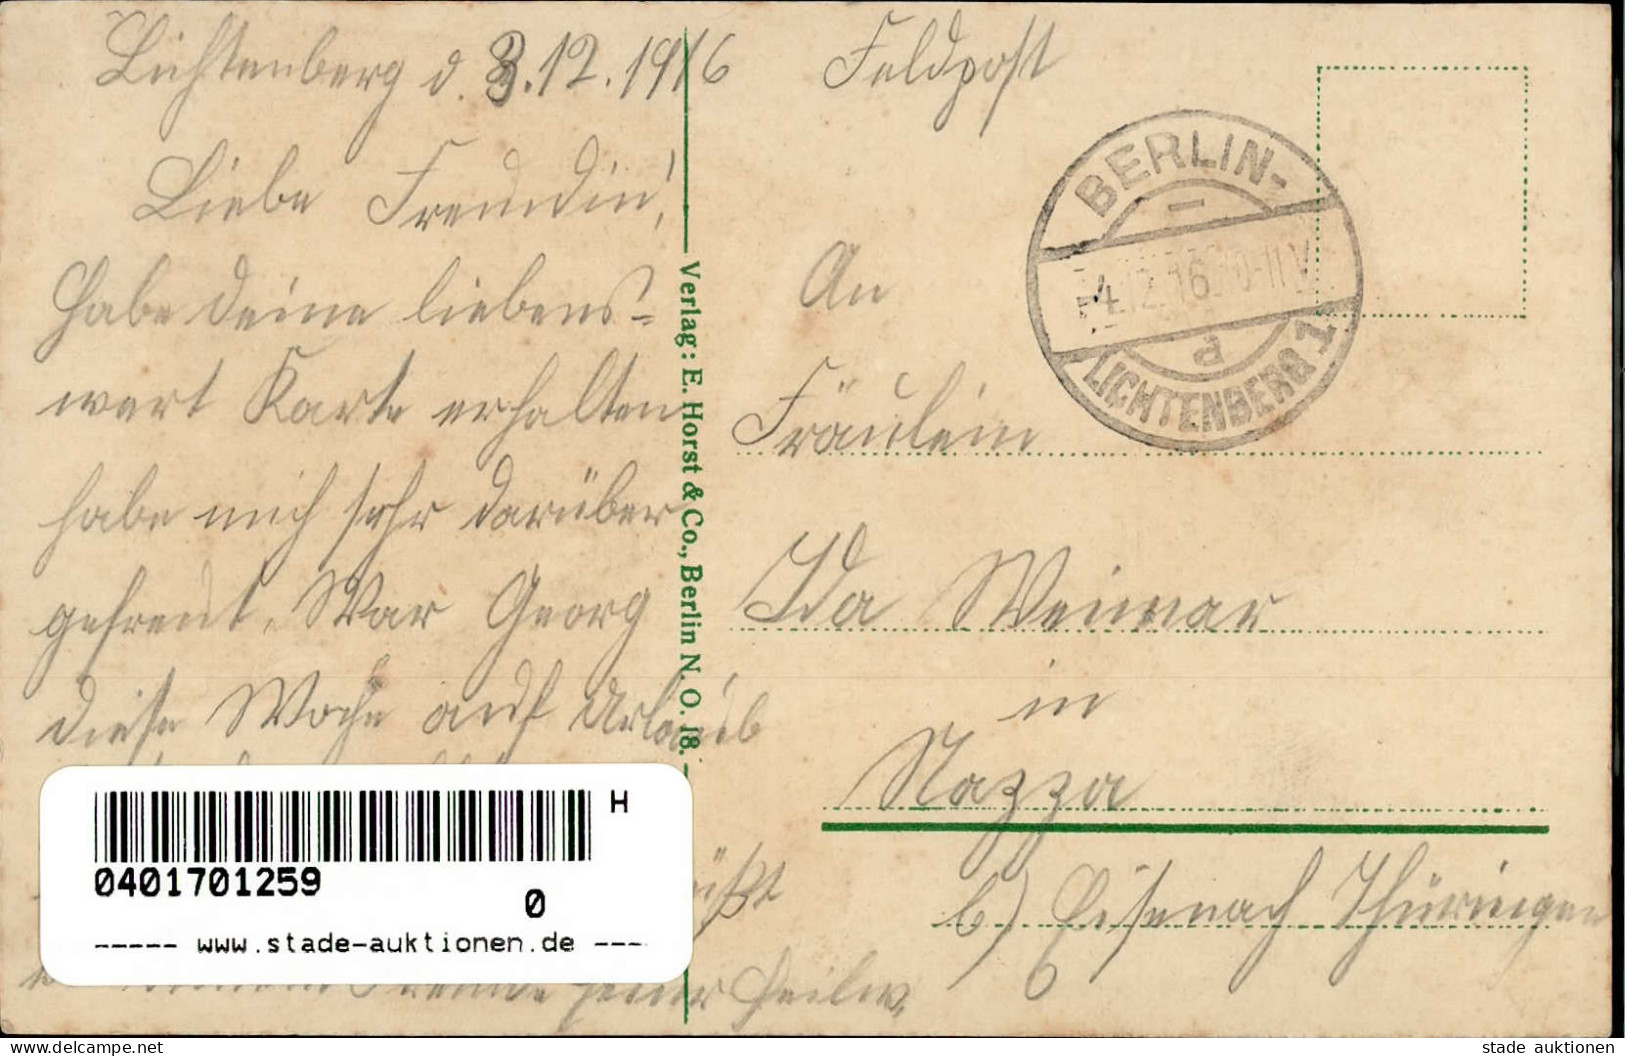 Lichtenberg d. 3.12.1916
Liebe Freundin!
Habe deine liebens-
wert Karte erhalten
habe mich sehr darüber
gefreut. War Georg
diese Woche auf Urlaub
grüßt
Freunde
Verlag: E. Horst & Co., Berlin N. O. 18.
Feldpost
BERLIN-
4.12.16.10-11V
d
LICHTENBERG 1
An
Fräulein
Ida Weimar
in
Nazza
b) Eisenach Thüringen
H
0401701259
0
----- www.stade-auktionen.de ---
www.stade-auktionen.com
stade auktionen